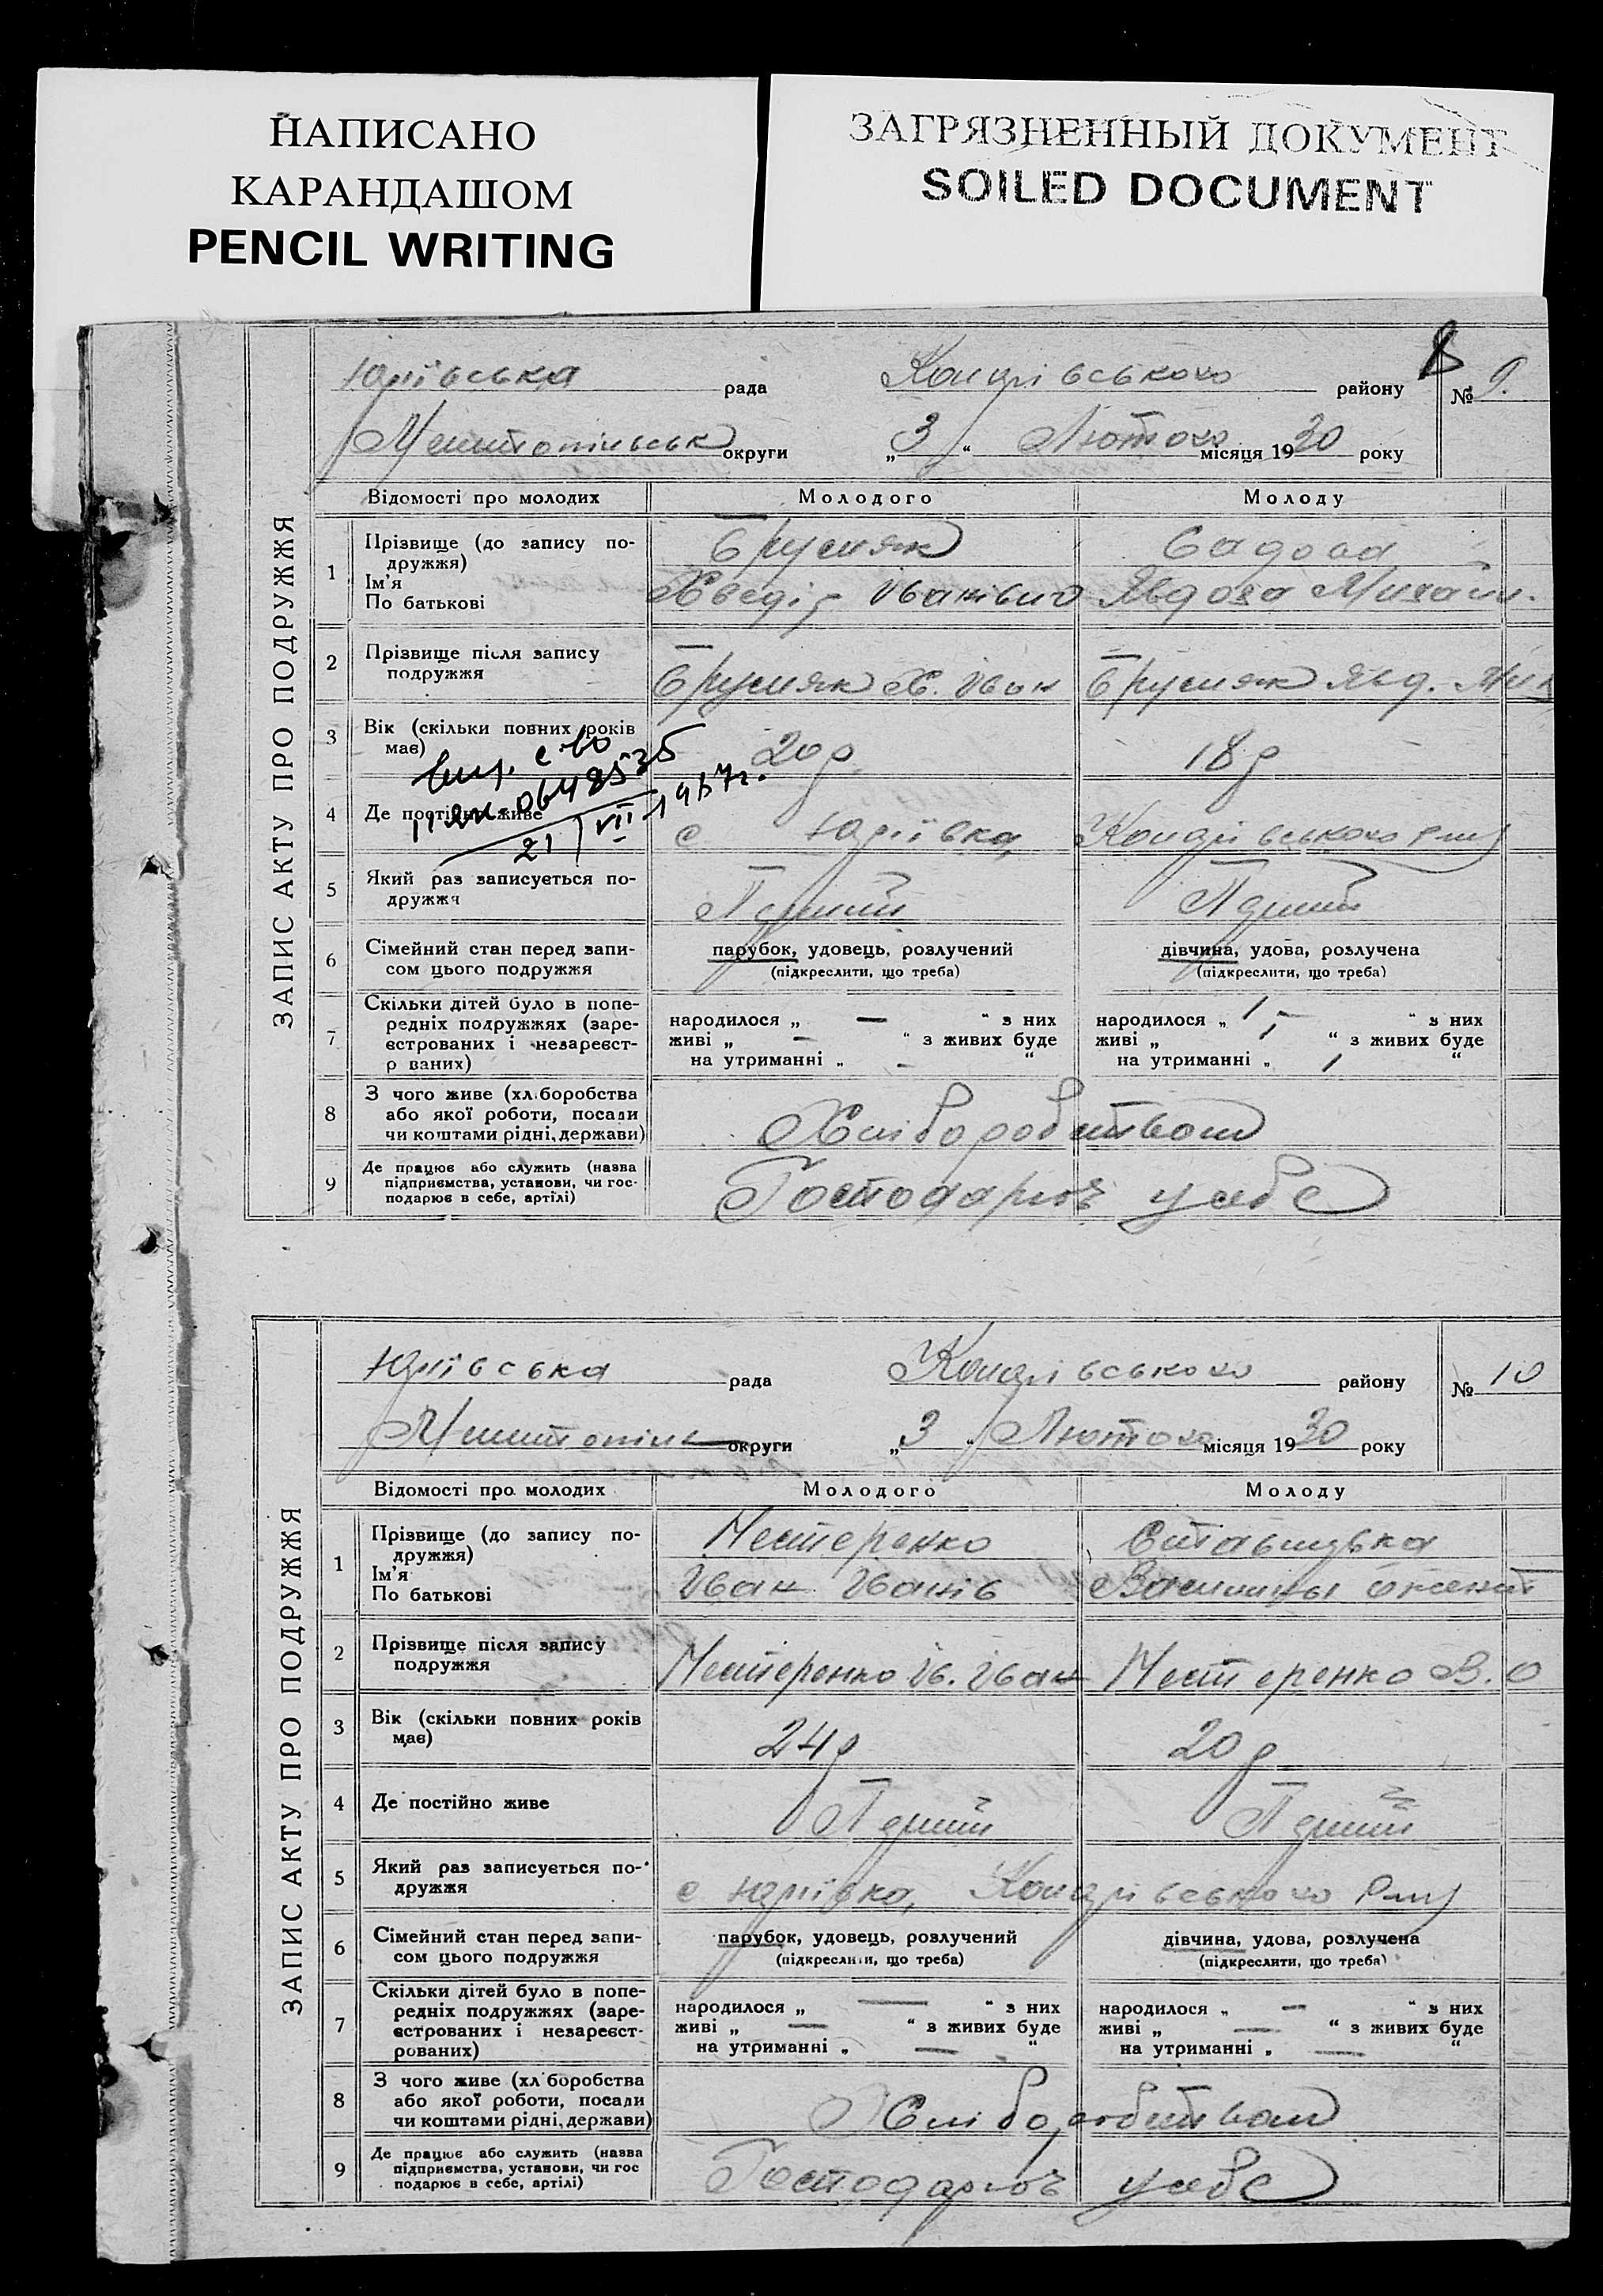 НАПИСАНО
КАРАНДАШОМ
PENCIL WRITING
ЗАГРЯЗНЕННЫЙ ДОКУМЕНТ
SOILED DOCUMENT
ЗАПИС АКТУ ПРО ПОДРУЖЖЯ
Юріївська рада району № 9.
округи „3“ Лютого місяця 1930 року
Відомості про молодих Молодого Молоду
1 Прізвище (до запису по-
дружжя)
Ім'я
По батькові
Садова
Явдоха
2 Прізвище після запису
подружжя
3 Вік (скільки повних років
має)
20 р. 18 р
21/VII-1967г.
4 Де постійно живе
с Юріївка,
5 Який раз записується по-
дружжя
Перший Перший
6 Сімейний стан перед запи-
сом цього подружжя
парубок, удовець, розлучений
(підкреслити, що треба)
дівчина, удова, розлучена
(підкреслити, що треба)
7 Скільки дітей було в попе-
редніх подружжях (заре-
єстрованих і незареєст-
р ваних)
народилося „ — “ з них
живі „ — “ з живих буде
на утриманні „ - “
народилося „ “ з них
живі „ “ з живих буде
на утриманні „ “
8 З чого живе (хл.боробства
або якої роботи, посади
чи коштами рідні, держави)
Хліборобством
9 Де працює або служить (назва
підприємства, установи, чи гос-
подарює в себе, артілі)
Господарює у себе
ЗАПИС АКТУ ПРО ПОДРУЖЖЯ
Юріївська рада району № 10
округи „3“ Лютого місяця 1930 року
Відомості про молодих Молодого Молоду
1 Прізвище (до запису по-
дружжя)
Ім'я
По батькові
Нестеренко Ставицька
Іван Іванів
2 Прізвище після запису
подружжя
Нестеренко Ів. Іван Нестеренко В. О
3 Вік (скільки повних років
має)
24 р 20 р
4 Де постійно живе
Перший Перший
5 Який раз записується по-
дружжя
с Юріївка,
6 Сімейний стан перед запи-
сом цього подружжя
парубок, удовець, розлучений
(підкреслити, що треба)
дівчина, удова, розлучена
(підкреслити, що треба)
7 Скільки дітей було в попе-
редніх подружжях (заре-
єстрованих і незареєст-
рованих)
народилося „ — “ з них
живі „ — “ з живих буде
на утриманні „ — “
народилося „ — “ з них
живі „ — “ з живих буде
на утриманні „ — “
8 З чого живе (хл боробства
або якої роботи, посади
чи коштами рідні, держави)
Хліборобством
9 Де працює або служить (назва
підприємства, установи, чи гос
подарює в себе, артілі)
Господарює у себе